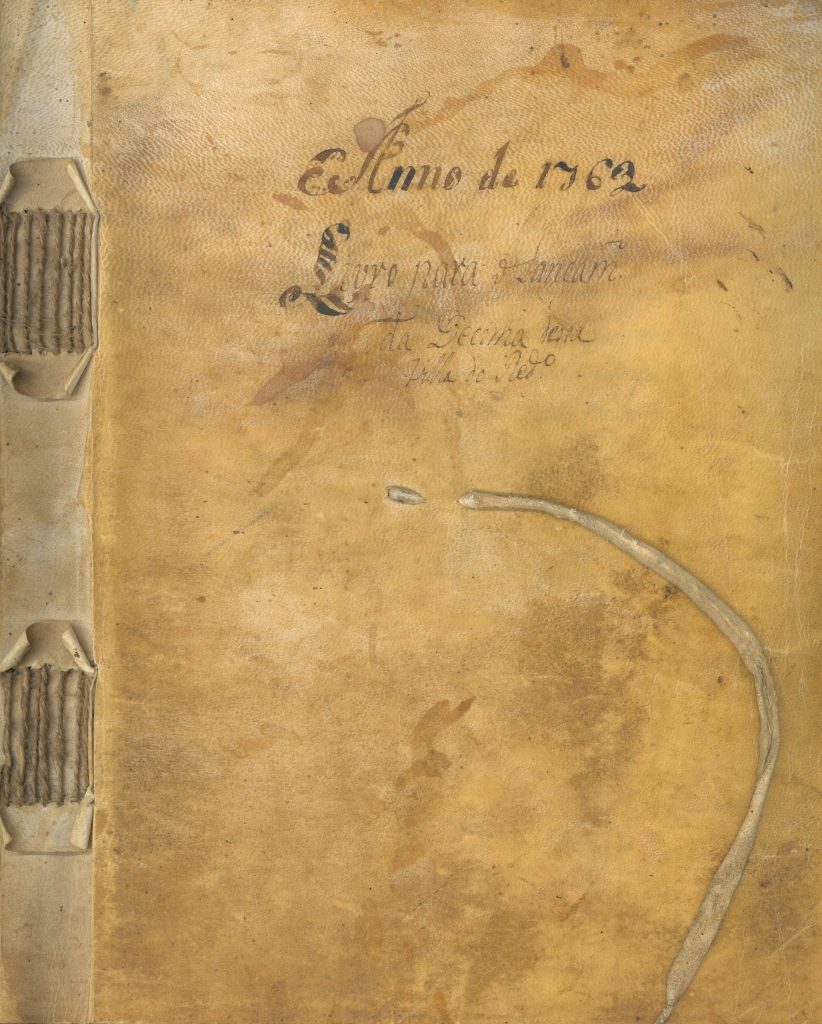 Anno de 1762
Livro para o Lancam.^to
da Decima desta
Villa do Red.^o